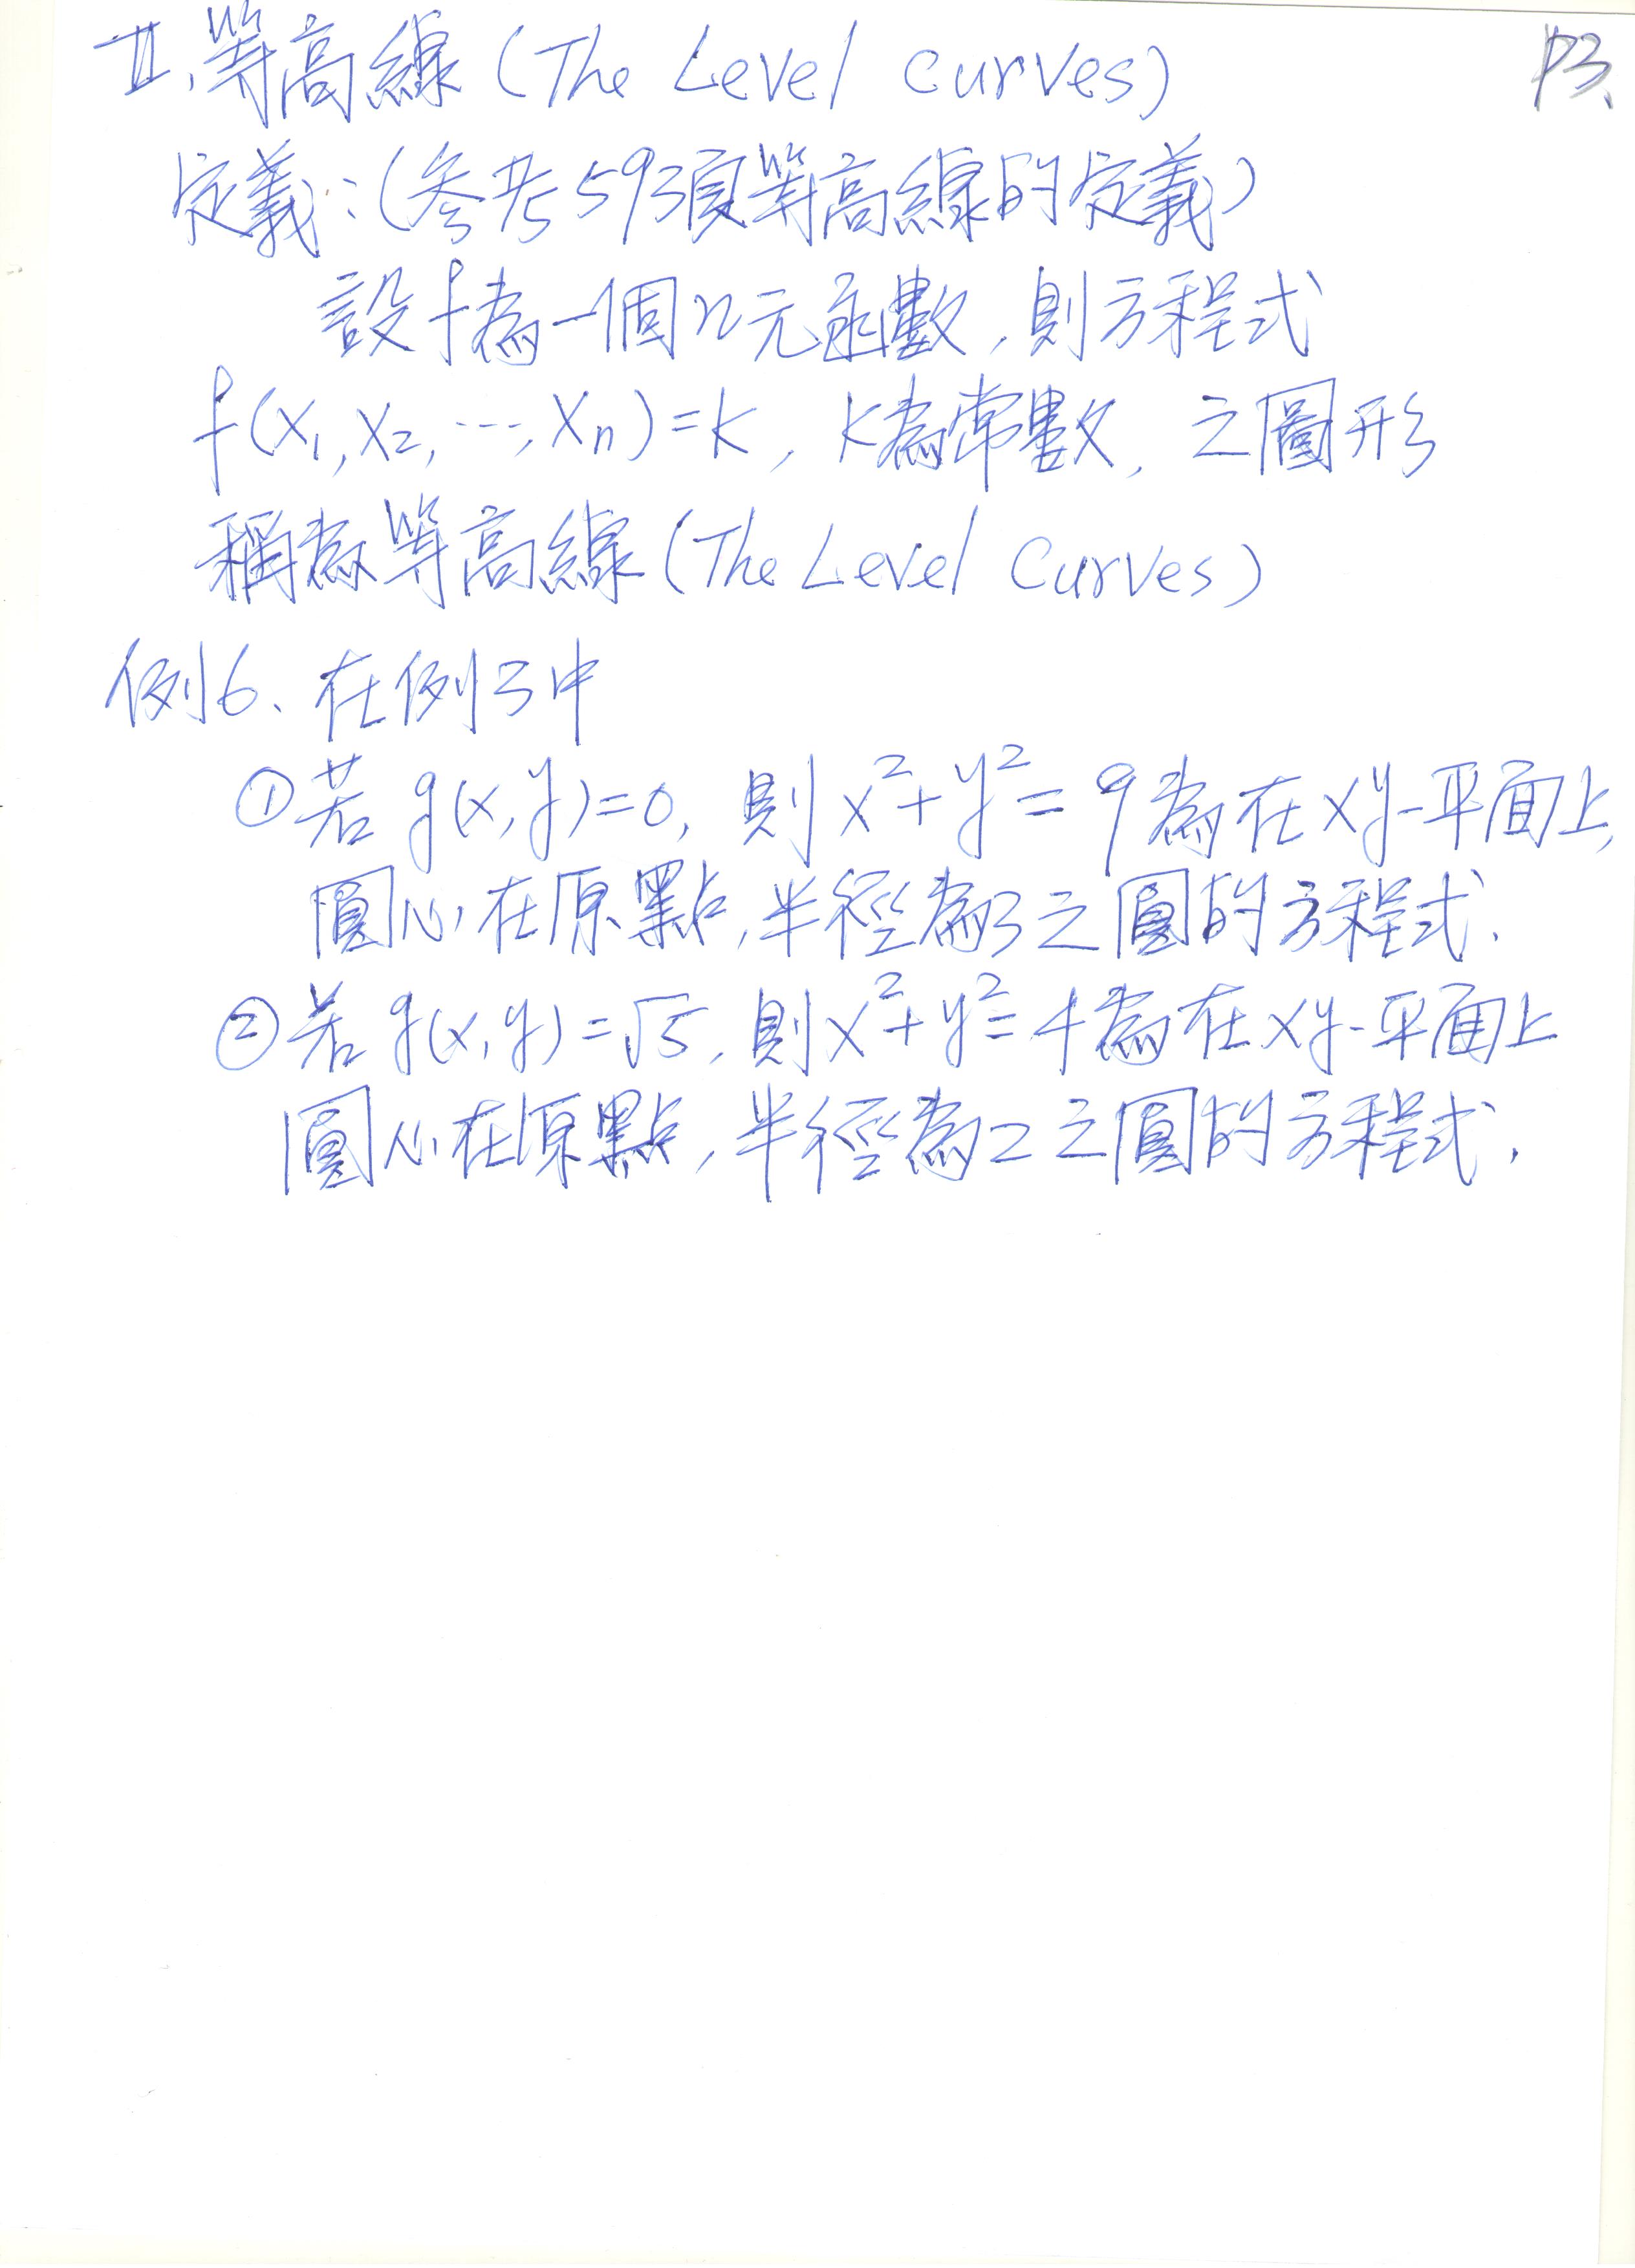 P3.
II. 等高線 (The Level Curves)
定義:(參考593頁等高線的定義)
設f為一個n元函數, 則方程式
f(x₁, x₂, ..., xₙ)=k, k為常數, 之圖形
稱為等高線 (The Level Curves)
例6. 在例3中
①若 g(x,y)=0, 則 x²+y²=9 為在xy-平面上,
圓心在原點, 半徑為3之圓的方程式.
②若 g(x,y)=√5, 則x²+y²=4為在xy-平面上
圓心在原點, 半徑為2之圓的方程式.